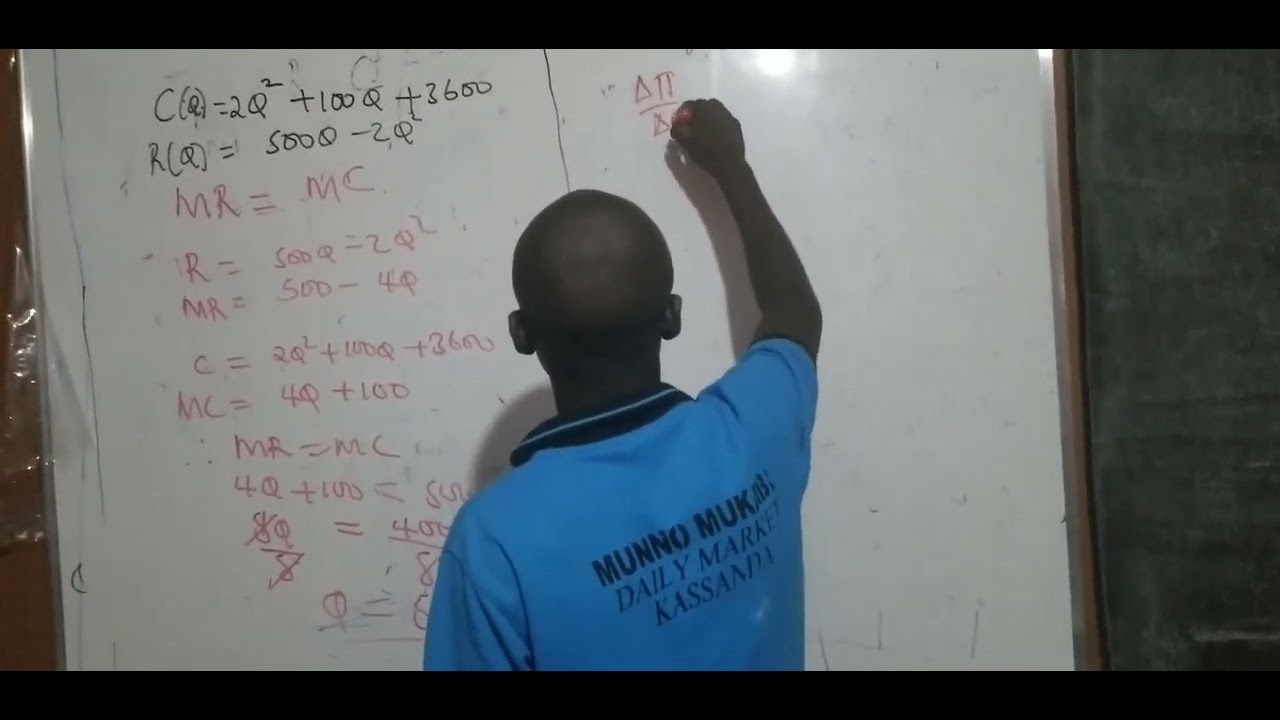 C(Q)=2Q²+100Q+3600
R(Q) = 500Q-2Q²
MR = MC
R = 500Q-2Q²
MR = 500 - 4Q
C = 2Q²+100Q+3600
MC = 4Q+100
∴ MR = MC
4Q+100 =
8Q/8 = 400/8
Q =
ΔΠ
Δ
MUNNO MUKABI
DAILY MARKET
KASSANDA